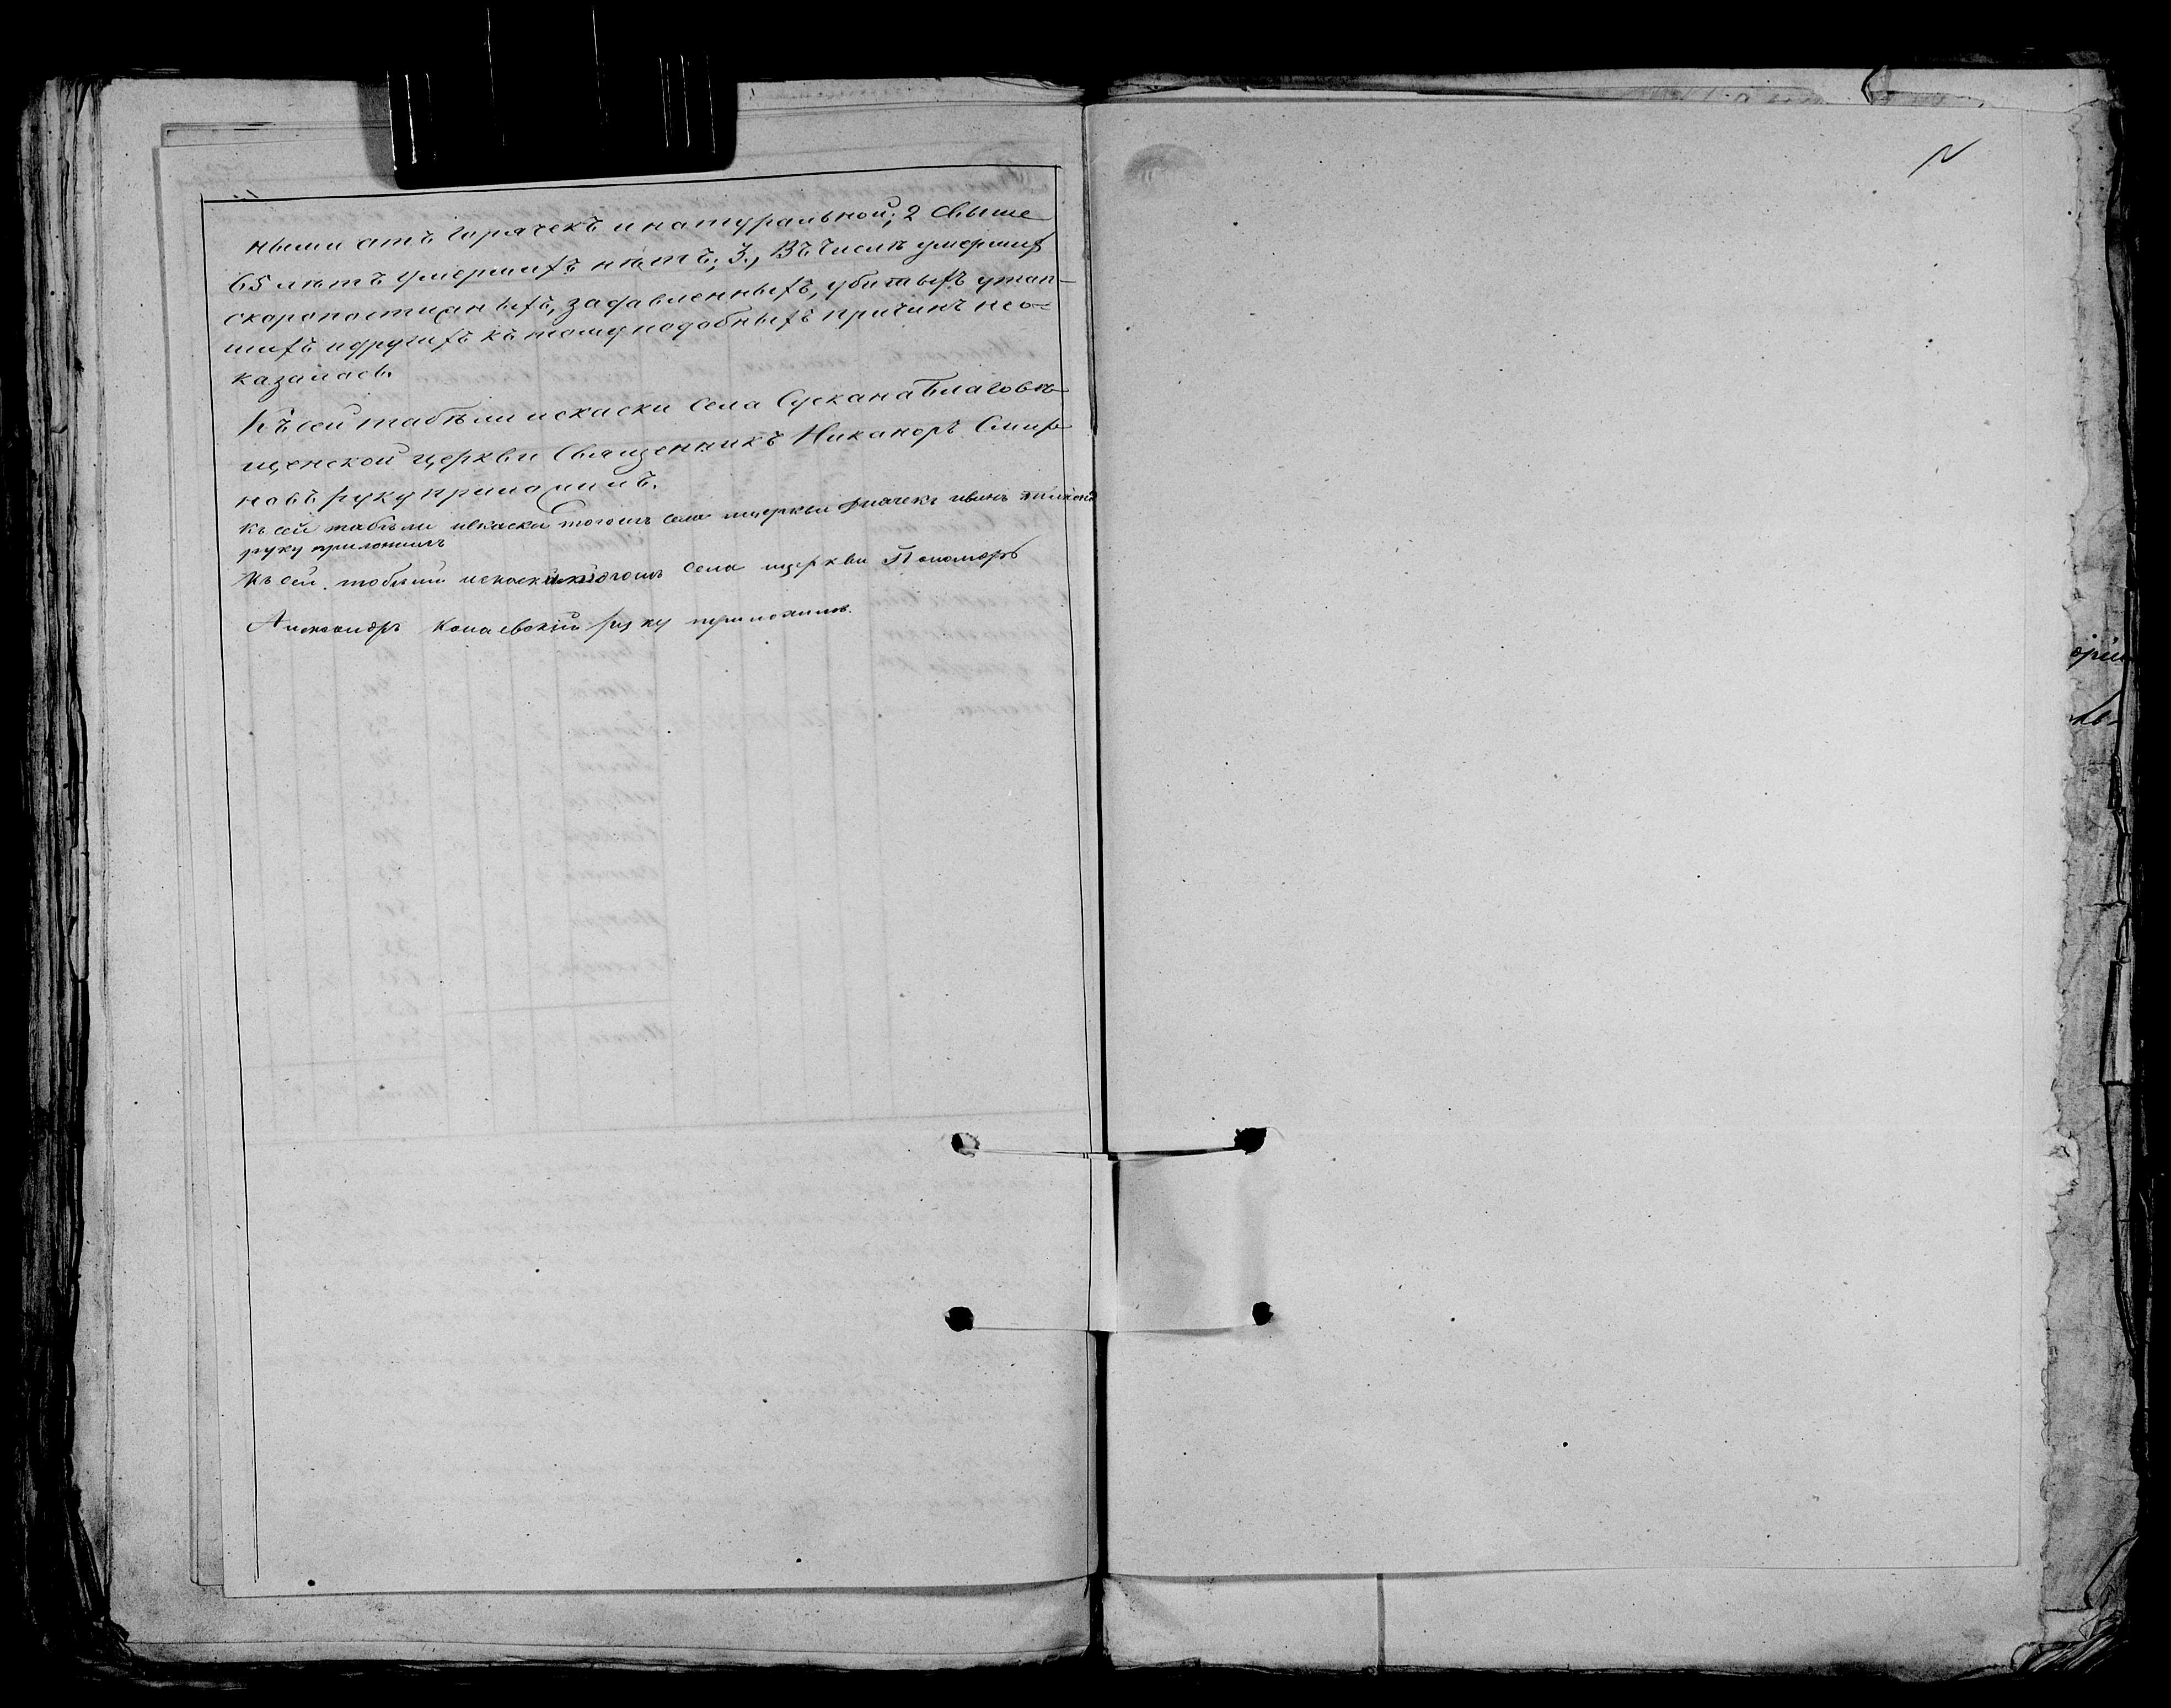 ными отъ горячекъ и натуральной; 2 свыше
65 лѣтъ умершихъ нѣтъ; 3., Въ числѣ умершихъ
скоропостижныхъ, задавленныхъ, убитыхъ утоп-
шихъ и другихъ къ тому подобныхъ причинъ нео-
казалось.
Къ сей табѣли и скаски села Сускана Благовѣ-
щенской церкви Священникъ Никаноръ Смир-
новъ руку приложилъ.
Къ сей табѣли искаски тогожъ села церкви дьячекъ иванъ
руку приложилъ
Къ сей табѣли искаски тогожъ села церкви Пономарь
Александръ руку приложилъ.